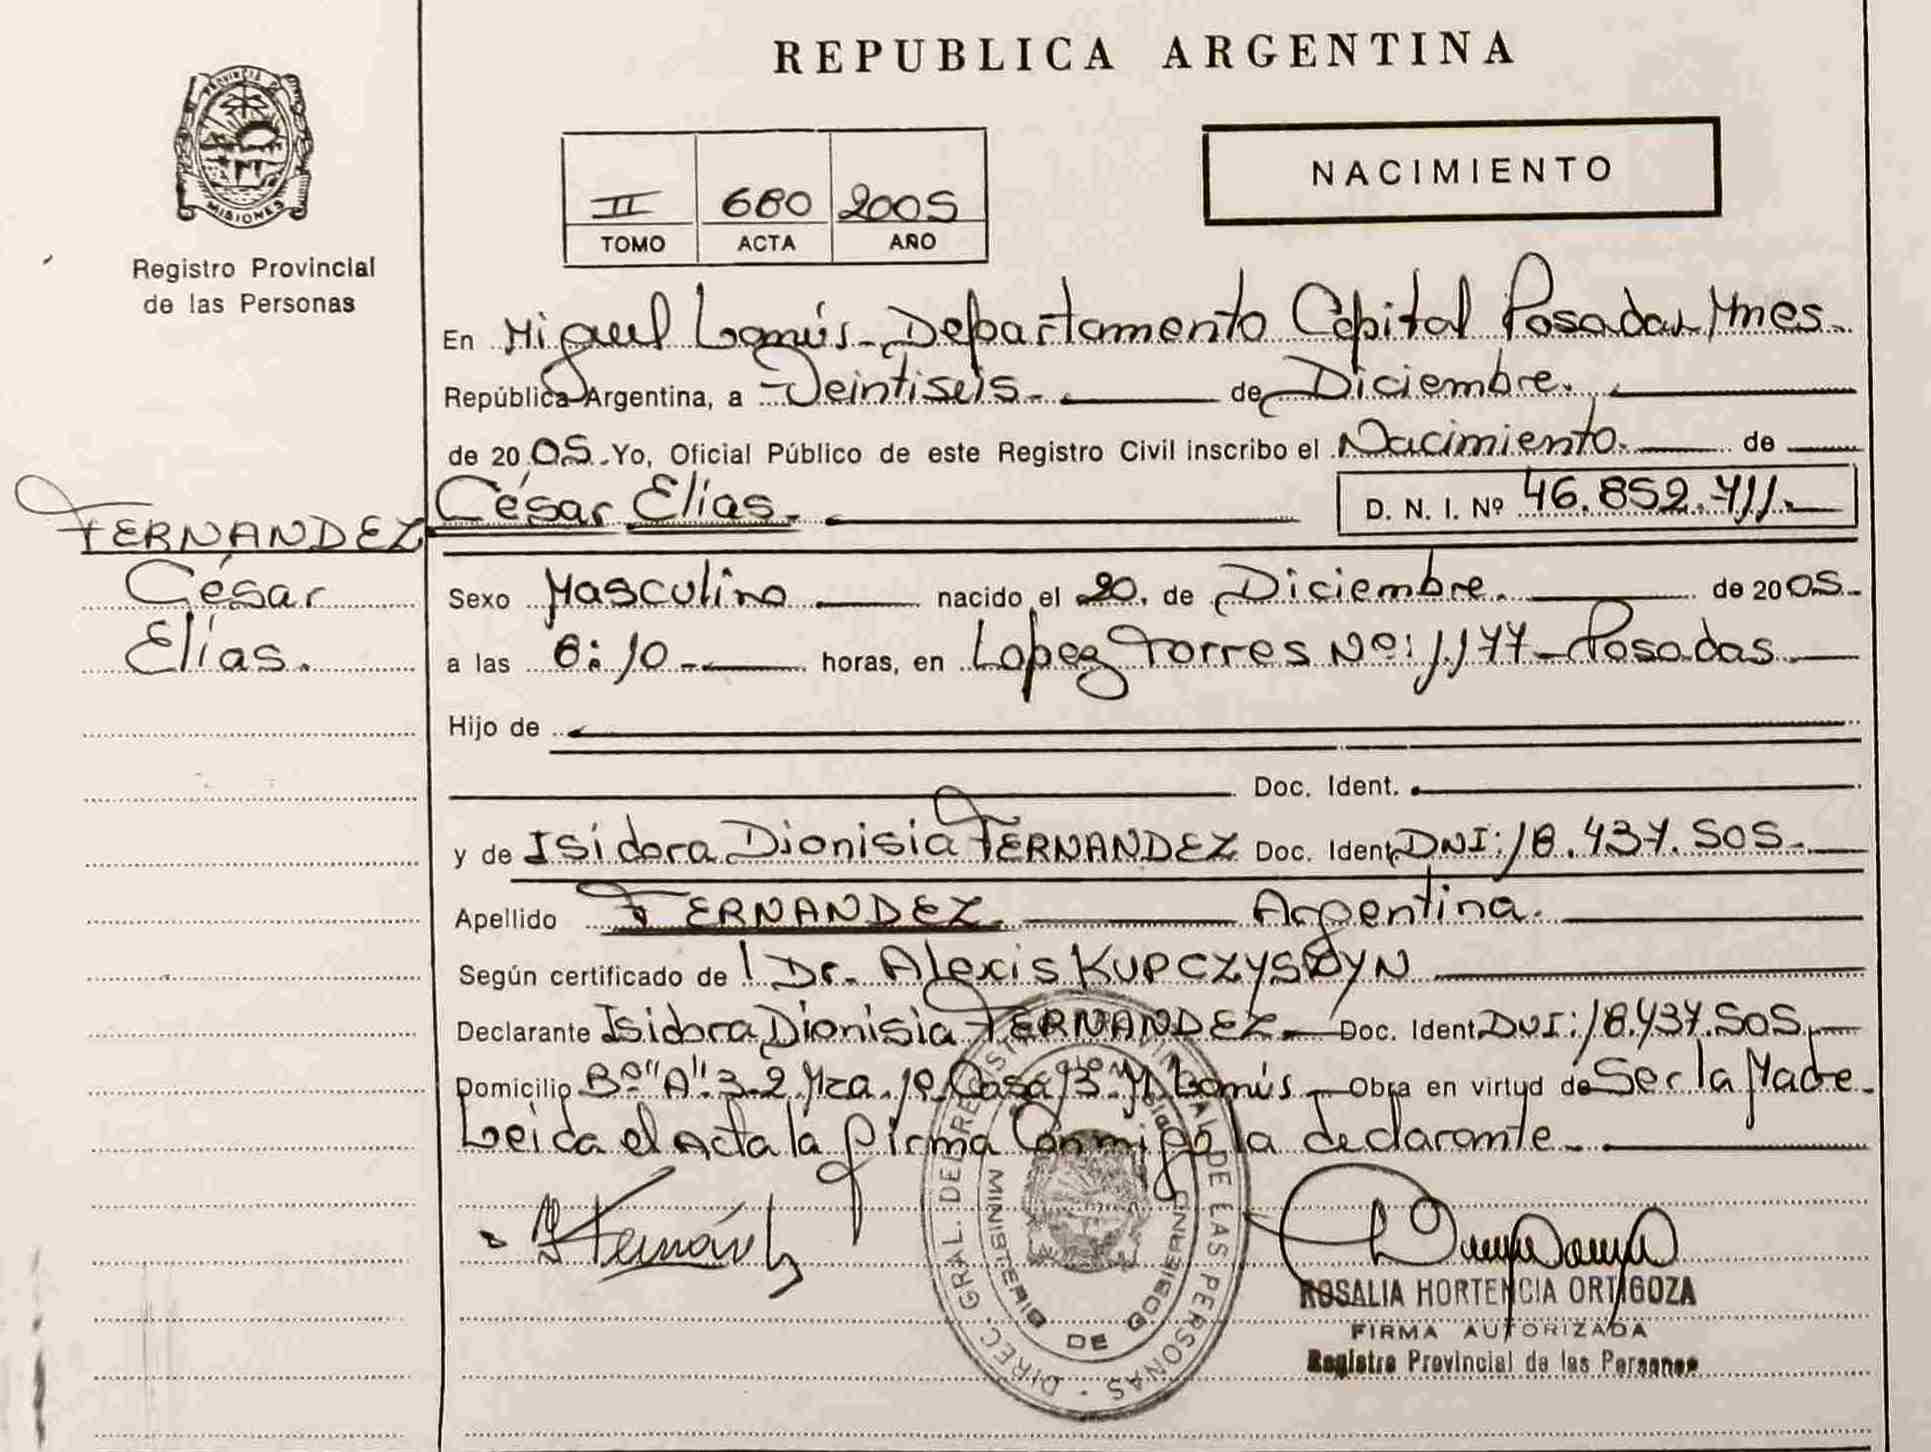 REPUBLICA ARGENTINA
PROVINCIA DE
MISIONES
Registro Provincial
de las Personas
II 680 2005
TOMO ACTA AÑO
NACIMIENTO
En Miguel Lanús - Departamento Capital Posadas Mnes.
República Argentina, a Veintiseis. de Diciembre.
de 2005. Yo, Oficial Público de este Registro Civil inscribo el Nacimiento. de
César Elías. D. N. I. Nº 46.852.711.
FERNANDEZ
César
Elías.
Sexo Masculino nacido el 20. de Diciembre. de 2005.
a las 6:10 horas, en Lopez Torres Nº: 1.177 - Posadas
Hijo de
Doc. Ident.
y de Isidora Dionisia FERNANDEZ Doc. Ident DNI: 18.437.505.
Apellido FERNANDEZ. Argentina.
Según certificado de Dr. Alexis
Declarante Isidora Dionisia FERNANDEZ. Doc. Ident. DNI: 18.437.505.
Domicilio Bº "A" 3-2 Mza. Casa 13 M. Lanús - Obra en virtud de Ser la Madre.
Leida el Acta la firma Conmigo la declarante.
DIREC. GRAL. DEL REGISTRO PROVINCIAL DE LAS PERSONAS
MINISTERIO DE GOBIERNO
ROSALIA HORTENCIA ORTIGOZA
FIRMA AUTORIZADA
Registro Provincial de las Personas